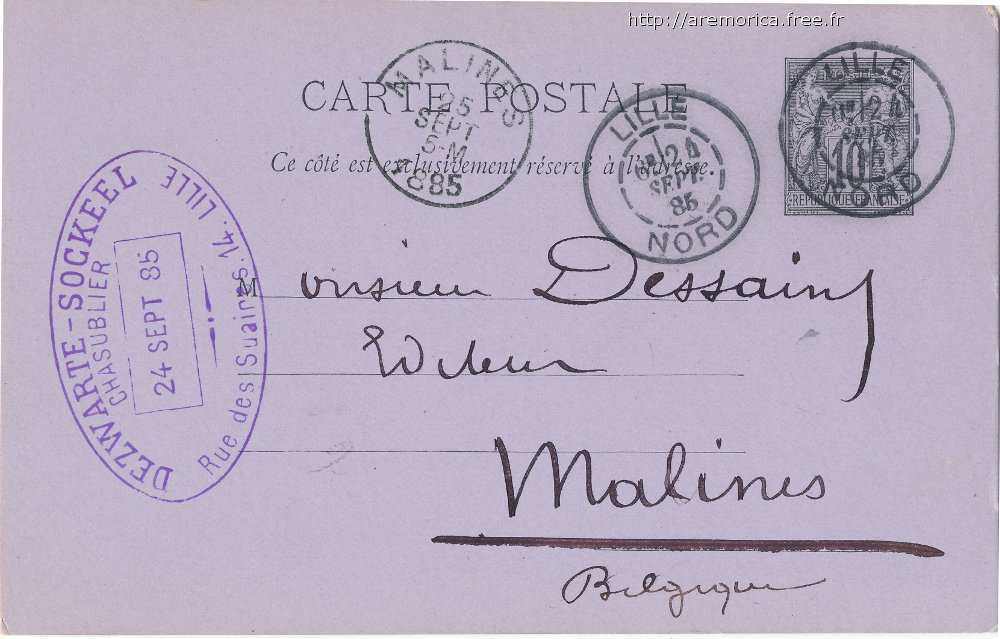 http://aremorica.free.fr
CARTE POSTALE
Ce côté est exclusivement réservé à l'adresse.
MALINES
25
SEPT
1885
LILLE
24
SEPT.
85
NORD
LILLE
NORD
10
REPUBLIQUE FRANCAISE
DEZWARTE-SOCKEEL
CHASUBLIER
24 SEPT 85
Rue des Suaires. 14. LILLE
Monsieur Dessain
Editeur
Malines
Belgique